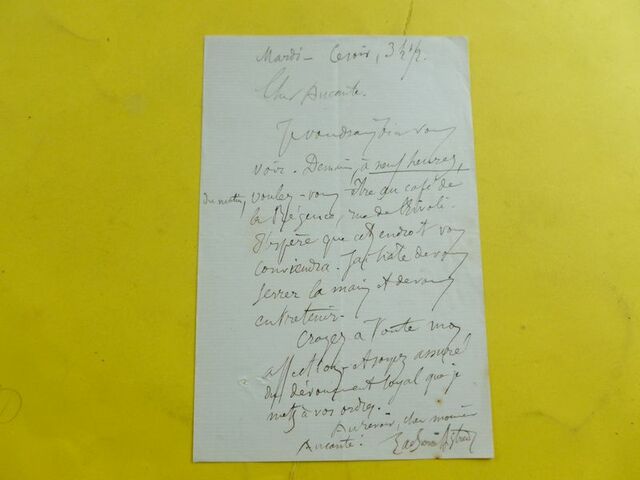 Mardi - Ce soir, 3 h 1/2.
Cher Aucante.
Je voudrais bien vous
voir. Demain, à neuf heures,
du matin, voulez-vous être au café de
la Régence, rue de Rivoli.
J'espère que cet endroit vous
conviendra. J'ai hâte de vous
serrer la main et de vous
entretenir.
Croyez à toute mon
affection et soyez assuré
du dévouement loyal que je
mets à vos ordres.
Au revoir, cher monsieur
Aucante.
Zacharie Astruc